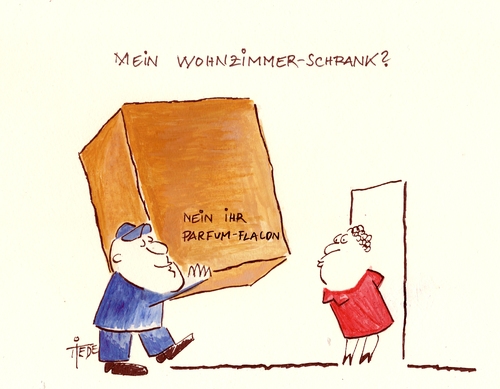 MEIN WOHNZIMMER-SCHRANK?
NEIN IHR
PARFUM-FLACON
TIEDE